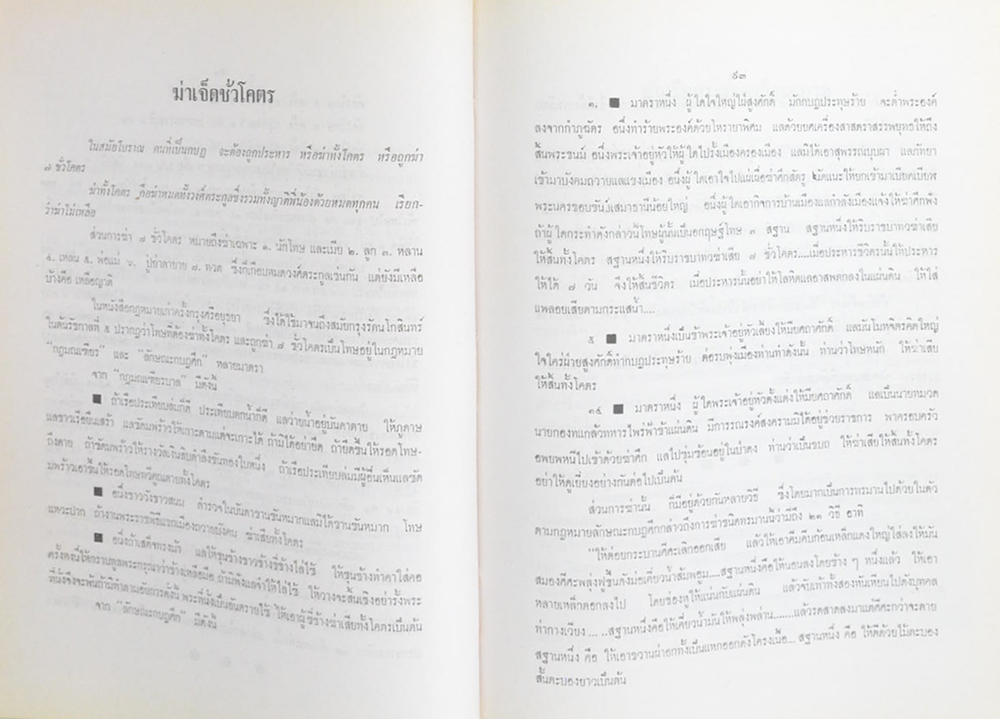 ฆ่าเจ็ดชั่วโคตร
ในสมัยโบราณ คนที่เป็นกบฏ จะต้องถูกประหาร หรือฆ่าทั้งโคตร หรือถูกฆ่า
๗ ชั่วโคตร
ฆ่าทั้งโคตร คือฆ่าหมดทั้งวงศ์ตระกูลซึ่งรวมทั้งญาติพี่น้องด้วยหมดทุกคน เรียก-
ว่าฆ่าไม่เหลือ
ส่วนการฆ่า ๗ ชั่วโคตร หมายถึงฆ่าเฉพาะ ๑. นักโทษ และเมีย ๒. ลูก ๓. หลาน
๔. เหลน ๕. พ่อแม่ ๖. ปู่ย่าตายาย ๗. ทวด ซึ่งก็เกือบหมดวงศ์ตระกูลเช่นกัน แต่ยังมีเหลือ
บ้างคือ เหลือญาติ
ในหนังสือกฎหมายเก่าครั้งกรุงศรีอยุธยา ซึ่งได้ใช้มาจนถึงสมัยกรุงรัตนโกสินทร์
ในต้นรัชกาลที่ ๕ ปรากฏว่าโทษที่ต้องฆ่าทั้งโคตร และถูกฆ่า ๗ ชั่วโคตรเป็นโทษอยู่ในกฎหมาย
"กฎมณเฑียร" และ "ลักษณะกบฏศึก" หลายมาตรา
จาก "กฎมณเฑียรบาล" มีดังนี้
■ ถ้าเรือประเทียบล่มก็ดี ประเทียบตกน้ำก็ดี แลว่ายน้ำอยู่บันดาตาย ให้ภูดาษ
แลชาวเรือยื่นเสร้า แลซัดมพร้าวให้เกาะตามแต่จะเกาะได้ ถ้ามิได้อย่ายึด ถ้ายึดขึ้นให้รอดโทษ-
ถึงตาย ถ้าซัดมพร้าวให้รางวัลเงินสิบตำลึงขันทองใบหนึ่ง ถ้าเรือประเทียบล่มมีผู้อื่นเห็นแลซัด
มพร้าวเอาขึ้นให้รอดโทษทวีคูณตายทั้งโคตร
■ อนึ่งชาววังชาวสนม ตำรวจในบันดาชานขันหมากแลมิได้ชานขันหมาก โทษ
แหวะปาก ถ้างานพระราชพิธีแขกเมืองถวายบังคม ฆ่าเสียทั้งโคตร
■ อนึ่งถ้าเสด็จทรงม้า แลให้ขุนช้างชาวช้างขี่ช้างไล่ใช้ ให้ขุนช้างทำคาใส่คอ
ครั้งตนนี้ให้กราบทูลพระกรุณาว่าช้างเหลือมือ ถ้ามิฟังแลจำให้ไล่ใช้ ให้วางจะสิ้นเชิงอย่ารั้งพระ
ที่นั่งจึงจะพ้นถ้ามิทำตามอัยการดั่งนี้ พระที่นั่งเป็นอันตรายไซ้ ให้เอาผู้ขี่ช้างฆ่าเสียทั้งโคตรเป็นต้น
จาก "ลักษณะกบฏศึก" มีดังนี้
๙๓
๑. ■ มาตราหนึ่ง ผู้ใดใจใหญ่ไฝ่สูงศักดิ์ มักกบฏประทุษร้าย จะต่ำพระองค์
ลงจากกำภูฉัตร อนึ่งทำร้ายพระองค์ด้วยโหรายาพิศม แลด้วยยศเครื่องสาสตราสรรพยุทธให้ถึง
สิ้นพระชนม์ อนึ่งพระเจ้าอยู่หัวให้ผู้ใดไปรั้งเมืองครองเมือง แลมิได้เอาสุพรรณบุบผา แลภัทยา
เข้ามาบังคมถวายแลแขงเมือง อนึ่งผู้ใดเอาใจไปแผ่เผื่อข้าศึกสัตรู นัดแนะให้ยกเข้ามาเบียดเบียฬ
พระนครขอบขันฑเสมาธานีน้อยใหญ่ อนึ่งผู้ใดเอากิจการบ้านเมืองแลกำลังเมืองแจ้งให้ข้าศึกฟัง
ถ้าผู้ใดกระทำดังกล่าวนี้โทษผู้นั้นเป็นอุกฤษฐ์โทษ ๓ สฐาน สฐานหนึ่งให้ริบราชบาทวฆ่าเสีย
ให้สิ้นทั้งโคตร สฐานหนึ่งให้ริบราชบาทวฆ่าเสีย ๗ ชั่วโคตร....เมื่อประหารชีวิตรนั้นให้ประหาร
ให้ได้ ๗ วัน จึงให้สิ้นชีวิตร เมื่อประหารนั้นอย่าให้โลหิตแลอาสพตกลงในแผ่นดิน ให้ใส่
แพลอยเสียตามกระแสน้ำ....
๕ ■ มาตราหนึ่งเป็นข้าพระเจ้าอยู่หัวเลี้ยงให้มียศถาศักดิ์ แลมันโมหจิตรคิดใหญ่
ใจใคร่ฝ่ายสูงศักดิ์ทำกบฏประทุษร้าย ต่อรบพุ่งเมืองท่านทำดังนั้น ท่านว่าโทษหนัก ให้ฆ่าเสีย
ให้สิ้นทั้งโคตร
๑๔ ■ มาตราหนึ่ง ผู้ใดพระเจ้าอยู่หัวตั้งแต่งให้มียศถาศักดิ์ แลเป็นนายหมวด
นายกองทแกล้วทหารไพร่ฟ้าข้าแผ่นดิน มีการรณรงค์สงครามมิได้อยู่ช่วยราชการ พาครอบครัว
อพยพหนีไปเข้าด้วยข้าศึก แลไปซุ่มซ่อนอยู่ในป่าดง ท่านว่าเป็นขบถ ให้ฆ่าเสียให้สิ้นทั้งโคตร
อย่าให้ดูเยี่ยงอย่างกันต่อไปเป็นต้น
ส่วนการฆ่านั้น ก็มีอยู่ด้วยกันหลายวิธี ซึ่งโดยมากเป็นการทรมานไปด้วยในตัว
ตามกฎหมายลักษณะกบฏศึกกล่าวถึงการฆ่าชนิดทรมานนี้ว่ามีถึง ๒๑ วิธี อาทิ
"ให้ต่อยกระบานศีศะเลิกออกเสีย แล้วให้เอาคีมคีบก้อนเหล็กแดงใหญ่ใส่ลงให้มัน
สมองศีศะพลุ่งฟู่ขึ้นดั่งม่อเคี่ยวน้ำส้มพอม....สฐานหนึ่งคือให้นอนลงโดยข้าง ๆ หนึ่งแล้ว ให้เอา
หลาวเหล็กตอกลงไป โดยช่องหูให้แน่นกับแผ่นดิน แล้วจับเท้าทั้งสองหันเหียนไปดั่งบุคคล
ทำกางเวียง ... ..สฐานหนึ่งคือให้เคี่ยวน้ำมันให้พลุ่งพล่าน.......แล้วรดสาดลงมาแต่ศีศะกว่าจะตาย
สฐานหนึ่ง คือ ให้เอาขวานผ่าอกทั้งเป็นแหกออกดังโครงเนื้อ... สฐานหนึ่ง คือ ให้ตีด้วยไม้ตะบอง
สั้นตะบองยาวเป็นต้น